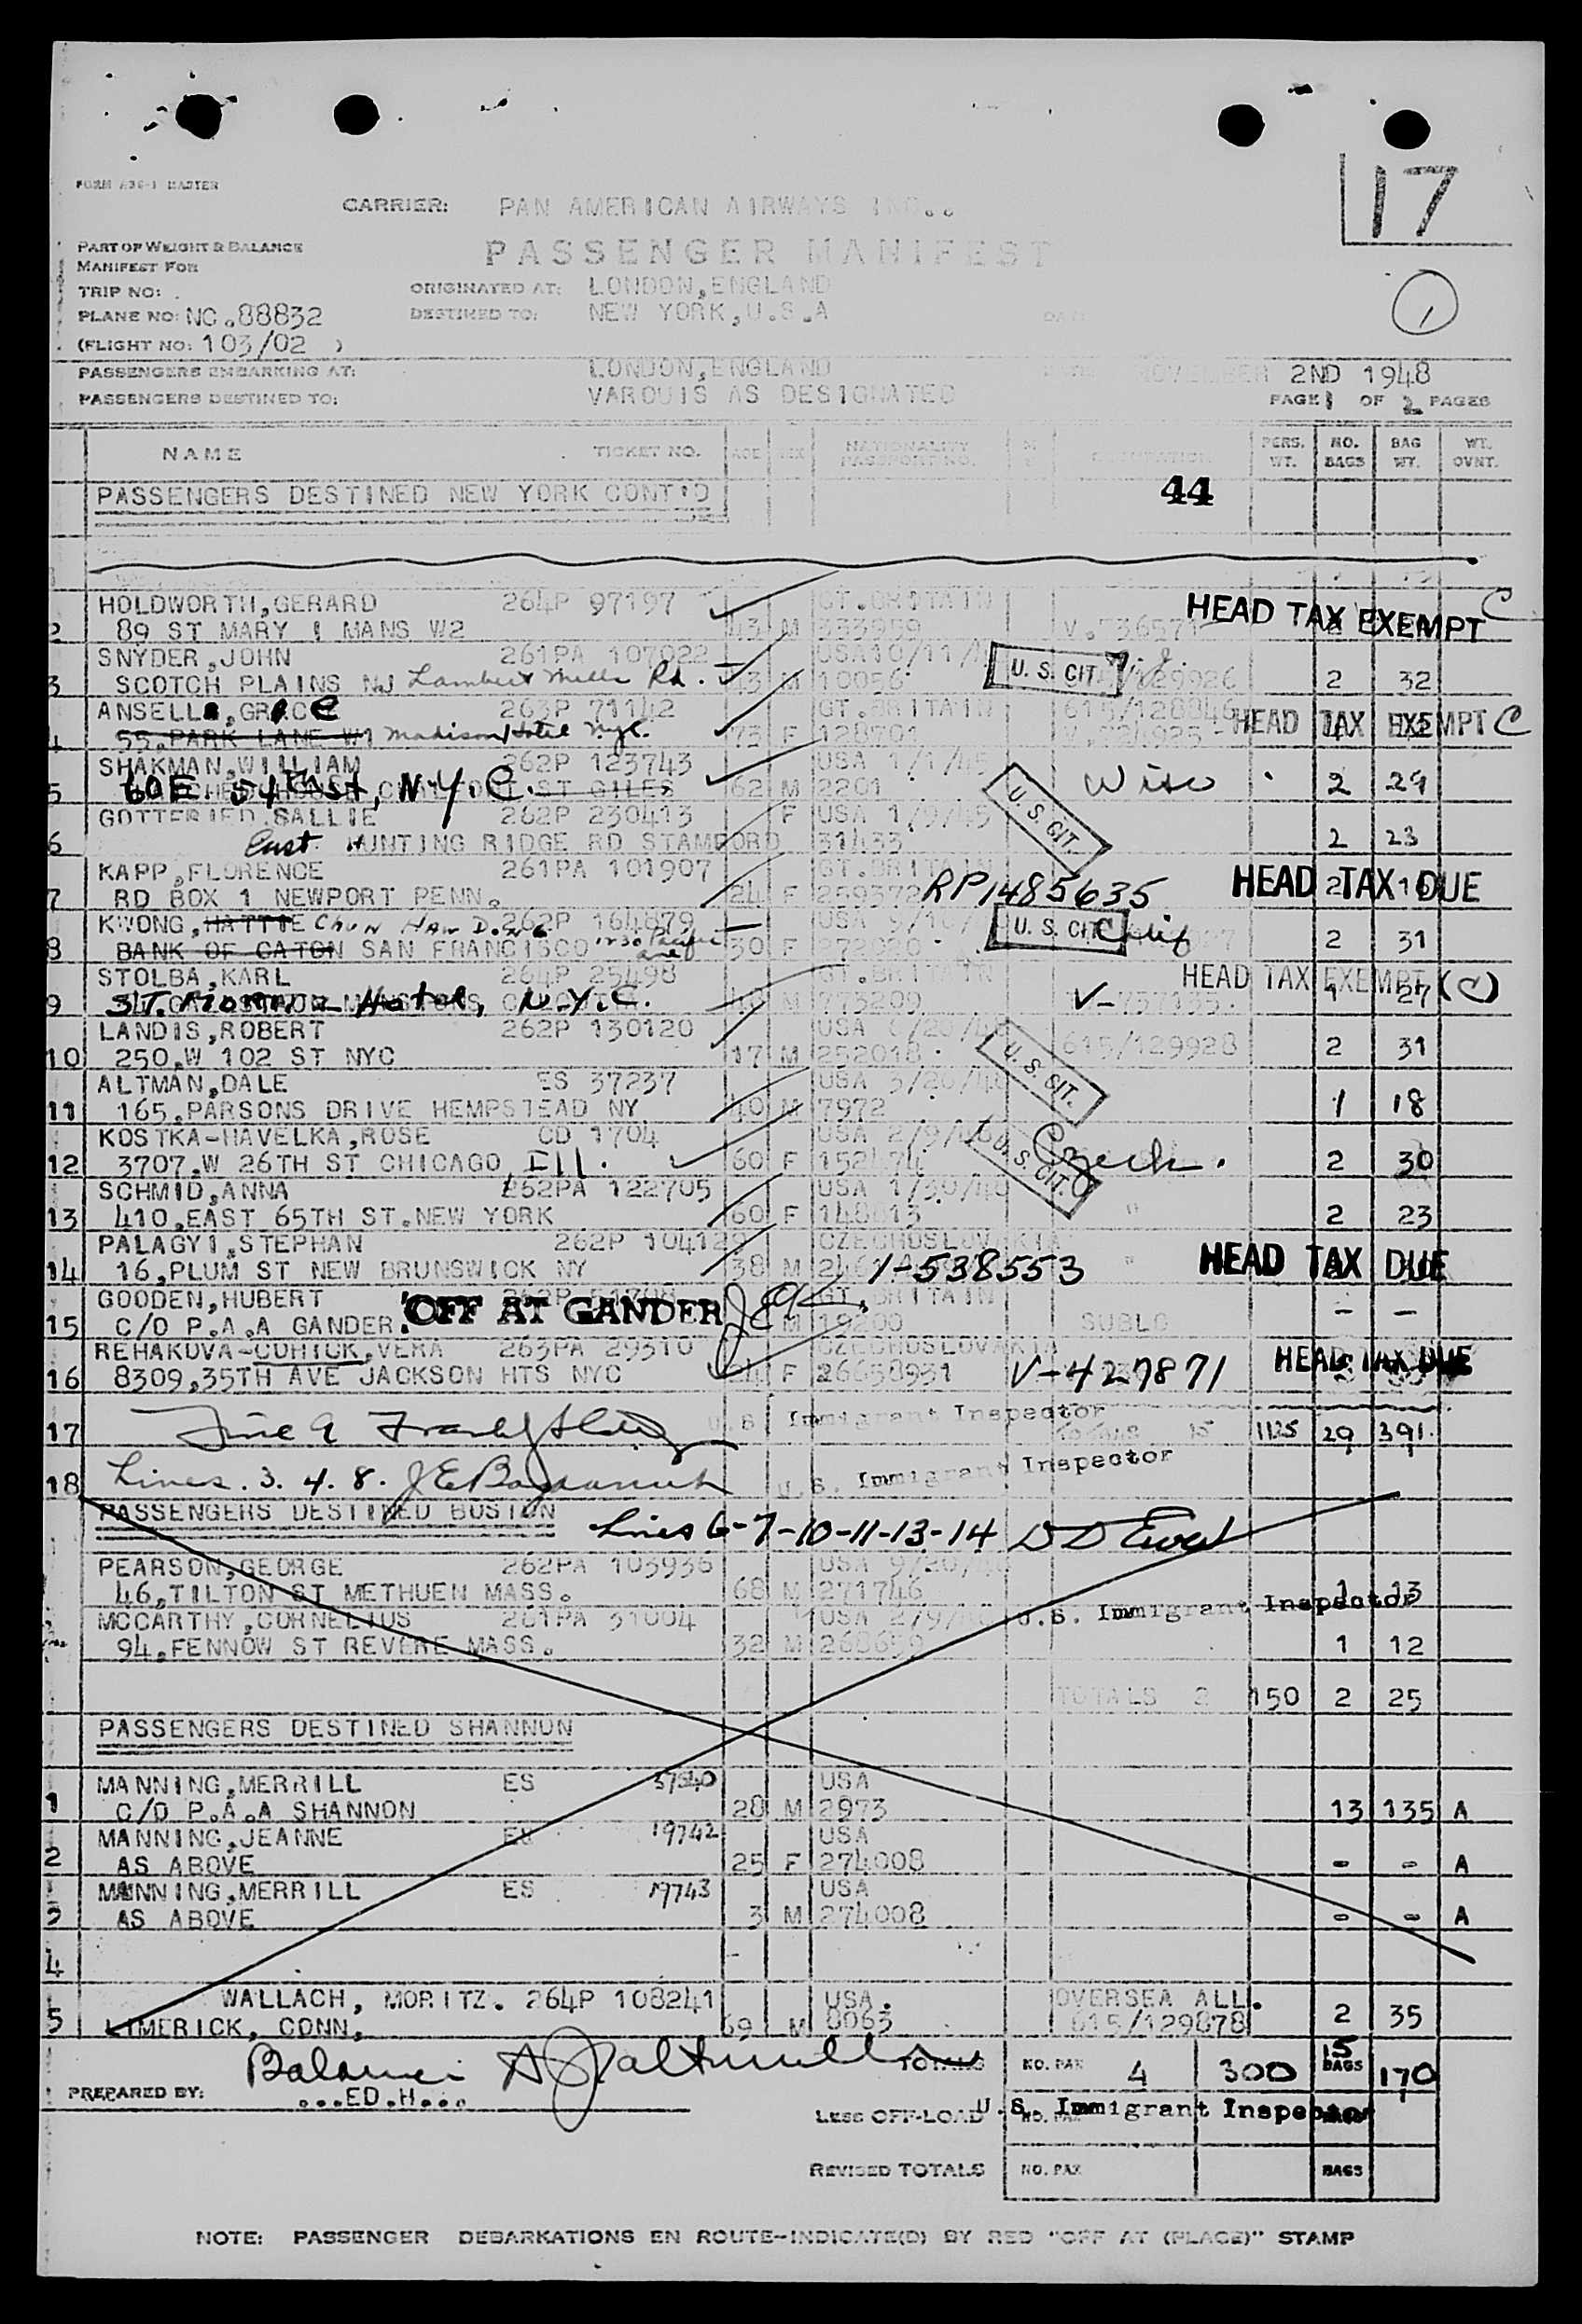 17
FORM
MASTER
CARRIER: PAN AMERICAN AIRWAYS INC..
PART OF WEIGHT & BALANCE
MANIFEST FOR
PASSENGER MANIFEST
TRIP NO:
ORIGINATED AT: LONDON,ENGLAND
PLANE NO: NC.88832
DESTINED TO: NEW YORK,U.S.A
DATE
(FLIGHT NO: 103/02 )
1
PASSENGERS EMBARKING AT: LONDON,ENGLAND
NOVEMBER 2ND 1948
PASSENGERS DESTINED TO: VAROUIS AS DESIGNATED
PAGE 1 OF 2 PAGES
NAME TICKET NO. AGE SEX NATIONALITY PASSPORT NO. PERS. WT. NO. BAGS BAG WT. WT. OVNT.
PASSENGERS DESTINED NEW YORK CONT'D 44
HOLDWORTH,GERARD 264P 97197 GT.BRITAIN HEAD TAX EXEMPT C
2 89 ST MARY I MANS W2 43 M 353959
SNYDER,JOHN 261PA 107022 U. S. CIT. N.J.
3 SCOTCH PLAINS NJ Lambert Mills Rd. 43 M 10056 2 32
ANSELL,GRACE 263P 71142 GT.BRITAIN HEAD TAX EXEMPT C
4 55.PARK LANE W1 Madison Hotel Nyc. 75 F 128701
SHAKMAN,WILLIAM 262P 123743 USA 1/1/45
5 60 E. 54th St, N.Y.C. ST GILES 62 M 2201 Wisc 2 29
GOTTFRIED,SALLIE 262P 230413 F USA 1/9/45 U. S. CIT.
6 East HUNTING RIDGE RD STAMFORD 31433 2 23
KAPP,FLORENCE 261PA 101907 GT.BRITAIN
7 RD BOX 1 NEWPORT PENN. 24 F 259372 RP1485635 HEAD TAX DUE
KWONG,HATTIE Chun Haw Dong 262P 164879 USA U. S. CIT. Calif
8 BANK OF CATON SAN FRANCISCO 30 F 272020 2 31
STOLBA,KARL 264P 25498 GT.BRITAIN HEAD TAX EXEMPT (C)
9 ST. Moritz Hotel, N.Y.C. M 773209 1 27
LANDIS,ROBERT 262P 130120 USA U. S. CIT.
10 250.W 102 ST NYC 17 M 252018 615/129928 2 31
ALTMAN,DALE ES 37237 USA
11 165.PARSONS DRIVE HEMPSTEAD NY 40 M 7972 1 18
KOSTKA-HAVELKA,ROSE CD 1704 USA U. S. CIT. Czech.
12 3707.W 26TH ST CHICAGO Ill. 60 F 2 30
SCHMID,ANNA 262PA 122705 USA
13 410.EAST 65TH ST.NEW YORK 60 F 148013 " 2 23
PALAGYI,STEPHAN 262P CZECHOSLOVAKIA
14 16,PLUM ST NEW BRUNSWICK NY 38 M 1-538553 " HEAD TAX DUE
GOODEN,HUBERT OFF AT GANDER GT.BRITAIN
15 C/O P.A.A GANDER. M 19200 SUBLO - -
REHAKOVA-COHICK,VERA 263PA 29310 CZECHOSLOVAKIA
16 8309,35TH AVE JACKSON HTS NYC 24 F 26658931 V-427871 HEAD TAX DUE
17 U.S. Immigrant Inspector 1125 29 391
18 Lines. 3. 4. 8. U.S. Immigrant Inspector
PASSENGERS DESTINED BOSTON Lines 6-7-10-11-13-14
PEARSON,GEORGE 262PA 103936 USA
46,TILTON ST METHUEN MASS. 68 M 271746 1 13
MCCARTHY,CORNELIUS 261PA 31004 USA U.S. Immigrant Inspector
94.FENNOW ST REVERE MASS. 32 M 268659 1 12
TOTALS 2 150 2 25
PASSENGERS DESTINED SHANNON
MANNING,MERRILL ES 37540 USA
1 C/O P.A.A SHANNON 28 M 2973 13 135 A
MANNING,JEANNE ES 19742 USA
2 AS ABOVE 25 F 274008 - - A
MANNING,MERRILL ES 19743 USA
3 AS ABOVE 3 M 274008 - - A
4
WALLACH, MORITZ. 264P 108241 USA. OVERSEA ALL.
5 LIMERICK, CONN, 69 M 8063 615/129878 2 35
Balance
TOTALS NO. PAX 4 300 15 BAGS 170
PREPARED BY: ...ED.H...
LESS OFF-LOAD NO. PAX U.S. Immigrant Inspector
REVISED TOTALS NO. PAX BAGS
NOTE: PASSENGER DEBARKATIONS EN ROUTE-INDICATE(D) BY RED "OFF AT (PLACE)" STAMP